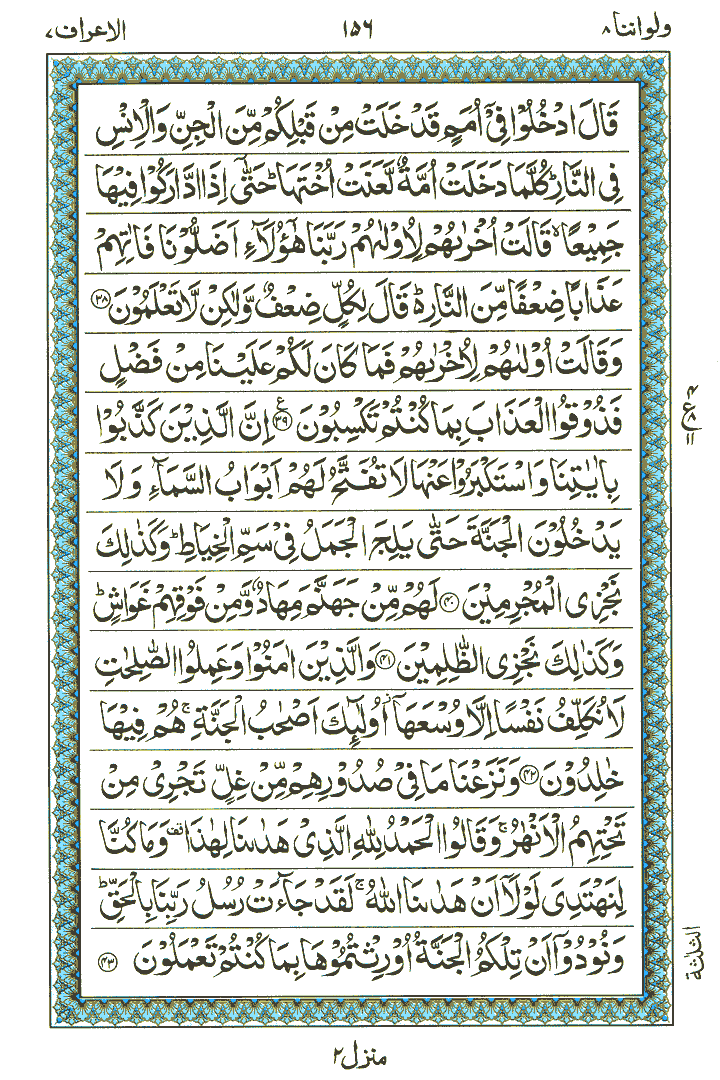 ولواننا ٨ ١٥٦ الاعراف ٧
قَالَ ادْخُلُوْا فِیْۤ اُمَمٍ قَدْ خَلَتْ مِنْ قَبْلِكُمْ مِّنَ الْجِنِّ وَالْاِنْسِ
فِی النَّارِ ؕ كُلَّمَا دَخَلَتْ اُمَّةٌ لَّعَنَتْ اُخْتَهَا ؕ حَتّٰۤی اِذَا ادَّارَكُوْا فِیْهَا
جَمِیْعًا ۙ قَالَتْ اُخْرٰىهُمْ لِاُوْلٰىهُمْ رَبَّنَا هٰۤؤُلَآءِ اَضَلُّوْنَا فَاٰتِهِمْ
عَذَابًا ضِعْفًا مِّنَ النَّارِ ؕ۬ قَالَ لِكُلٍّ ضِعْفٌ وَّلٰكِنْ لَّا تَعْلَمُوْنَ ﴿۳۸﴾
وَقَالَتْ اُوْلٰىهُمْ لِاُخْرٰىهُمْ فَمَا كَانَ لَكُمْ عَلَیْنَا مِنْ فَضْلٍ
فَذُوْقُوا الْعَذَابَ بِمَا كُنْتُمْ تَكْسِبُوْنَ ﴿۳۹﴾ ع اِنَّ الَّذِیْنَ كَذَّبُوْا
بِاٰیٰتِنَا وَاسْتَكْبَرُوْا عَنْهَا لَا تُفَتَّحُ لَهُمْ اَبْوَابُ السَّمَآءِ وَلَا
یَدْخُلُوْنَ الْجَنَّةَ حَتّٰی یَلِجَ الْجَمَلُ فِیْ سَمِّ الْخِیَاطِ ؕ وَكَذٰلِكَ
نَجْزِی الْمُجْرِمِیْنَ ﴿۴۰﴾ لَهُمْ مِّنْ جَهَنَّمَ مِهَادٌ وَّمِنْ فَوْقِهِمْ غَوَاشٍ ؕ
وَكَذٰلِكَ نَجْزِی الظّٰلِمِیْنَ ﴿۴۱﴾ وَالَّذِیْنَ اٰمَنُوْا وَعَمِلُوا الصّٰلِحٰتِ
لَا نُكَلِّفُ نَفْسًا اِلَّا وُسْعَهَاۤ ؗ اُولٰٓىِٕكَ اَصْحٰبُ الْجَنَّةِ ۚ هُمْ فِیْهَا
خٰلِدُوْنَ ﴿۴۲﴾ وَنَزَعْنَا مَا فِیْ صُدُوْرِهِمْ مِّنْ غِلٍّ تَجْرِیْ مِنْ
تَحْتِهِمُ الْاَنْهٰرُ ۚ وَقَالُوا الْحَمْدُ لِلّٰهِ الَّذِیْ هَدٰىنَا لِهٰذَا ۫ وَمَا كُنَّا
لِنَهْتَدِیَ لَوْلَاۤ اَنْ هَدٰىنَا اللّٰهُ ۚ لَقَدْ جَآءَتْ رُسُلُ رَبِّنَا بِالْحَقِّ ؕ
وَنُوْدُوْۤا اَنْ تِلْكُمُ الْجَنَّةُ اُوْرِثْتُمُوْهَا بِمَا كُنْتُمْ تَعْمَلُوْنَ ﴿۴۳﴾
۴
ع
۸
۱۱
الثلثة
منزل ۲